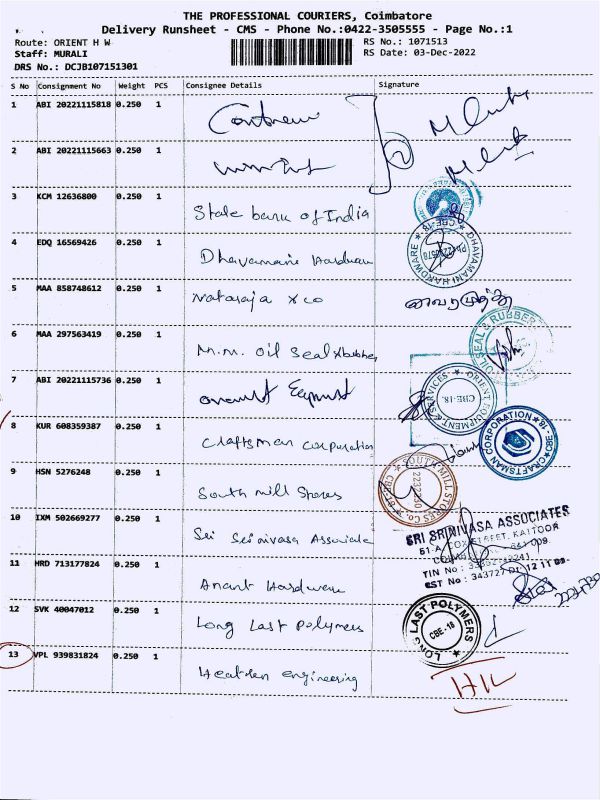 THE PROFESSIONAL COURIERS, Coimbatore
Delivery Runsheet - CMS - Phone No.:0422-3505555 - Page No.:1
Route: ORIENT H W
RS No.: 1071513
Staff: MURALI
RS Date: 03-Dec-2022
DRS No.: DCJB107151301
S No Consignment No Weight PCS Consignee Details Signature
1 ABI 20221115818 0.250 1
2 ABI 20221115663 0.250 1
3 KCM 12636800 0.250 1 State bank of India
4 EDQ 16569426 0.250 1 Dhavamani Hardware
DHAVAMANI HARDWARE CBE-18
5 MAA 858748612 0.250 1 Nataraja & co
6 MAA 297563419 0.250 1 M.M. Oil Seal & Rubber
OIL SEAL & RUBBER
7 ABI 20221115736 0.250 1
ORIENT EQUIPMENT & SERVICES CBE-18.
8 KUR 608359387 0.250 1 Craftsman Corporation
CRAFTSMAN CORPORATION CBE-18
9 HSN 5276248 0.250 1 South Mill Stores
SOUTH MILL STORES Co. 2232230
10 IXM 502669277 0.250 1 Sri Srinivasa Associate
SRI SRINIVASA ASSOCIATES
STREET, KATTOOR
641 009.
TIN No :
CST No : 343727 Dt. 12 11
11 HRD 713177824 0.250 1 Anant Hardware
12 SVK 40047012 0.250 1 Long Last Polymers
LONG LAST POLYMERS CBE-18
13 VPL 939831824 0.250 1 engineering